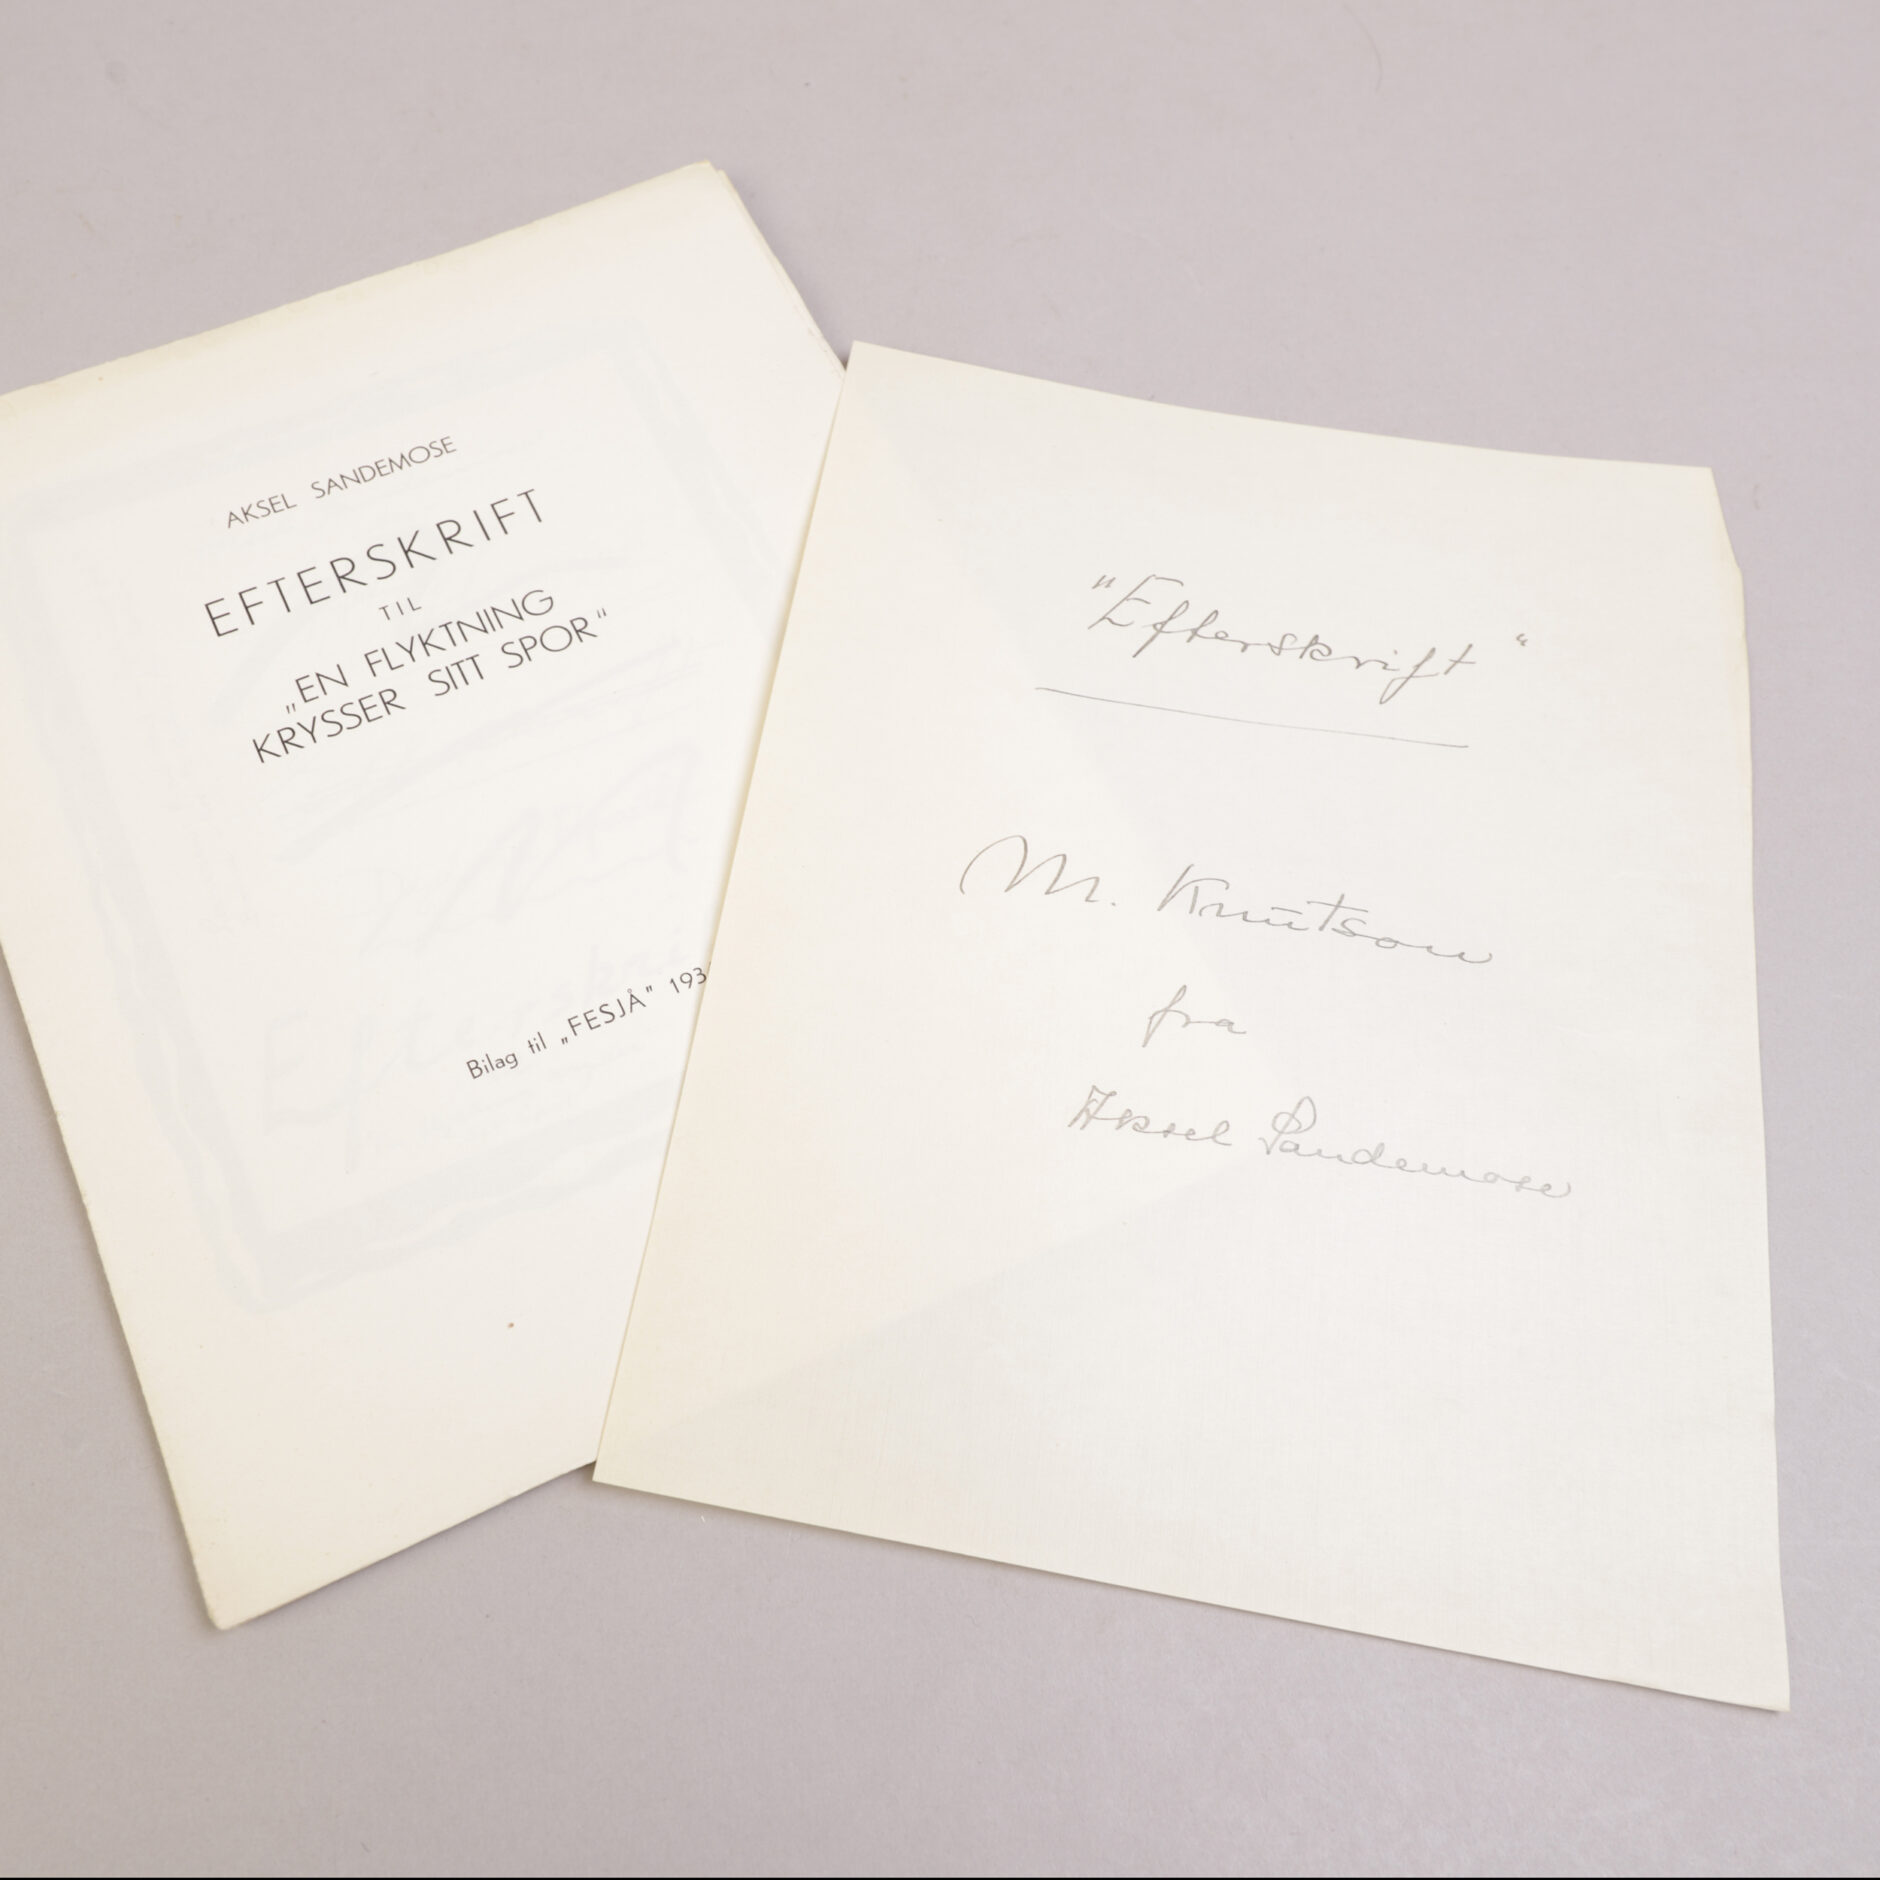 AKSEL SANDEMOSE
EFTERSKRIFT
TIL
„EN FLYKTNING
KRYSSER SITT SPOR"
Bilag til „FESJÅ" 193
"Efterskrift"
M. Knutson
fra
Aksel Sandemose